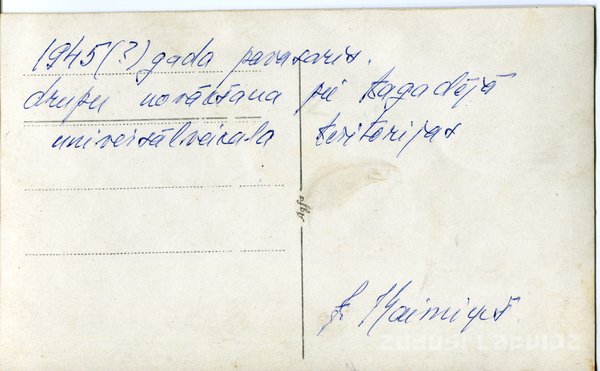 1945(?) gada pavasaris.
drupu novākšana pie tagadējā
universālveikala teritorijas
Agfa
J. Kaimiņš
ZUDUSĪ LATVIJA